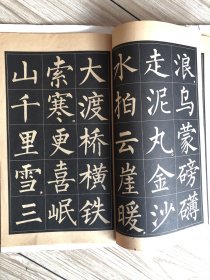 浪乌蒙磅礴
走泥丸金沙
水拍云崖暖
大渡桥横铁
索寒更喜岷
山千里雪三